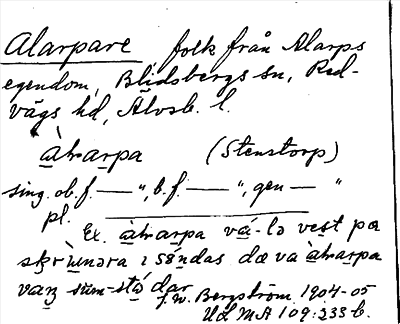 Alarpare folk från Alarps
egendom, Blidsbergs sn, Red-
vägs hd, Älvsb. l.
àlrarpa (Stenstorp)
sing. ob. f. — ", b. f. — ", gen — "
pl.
Ex. àlrarpa vá-lə vest pə
ı sö́ndas də va àlrarpa
J. W. Bergström 1904-05
ULMA 109:333 b.